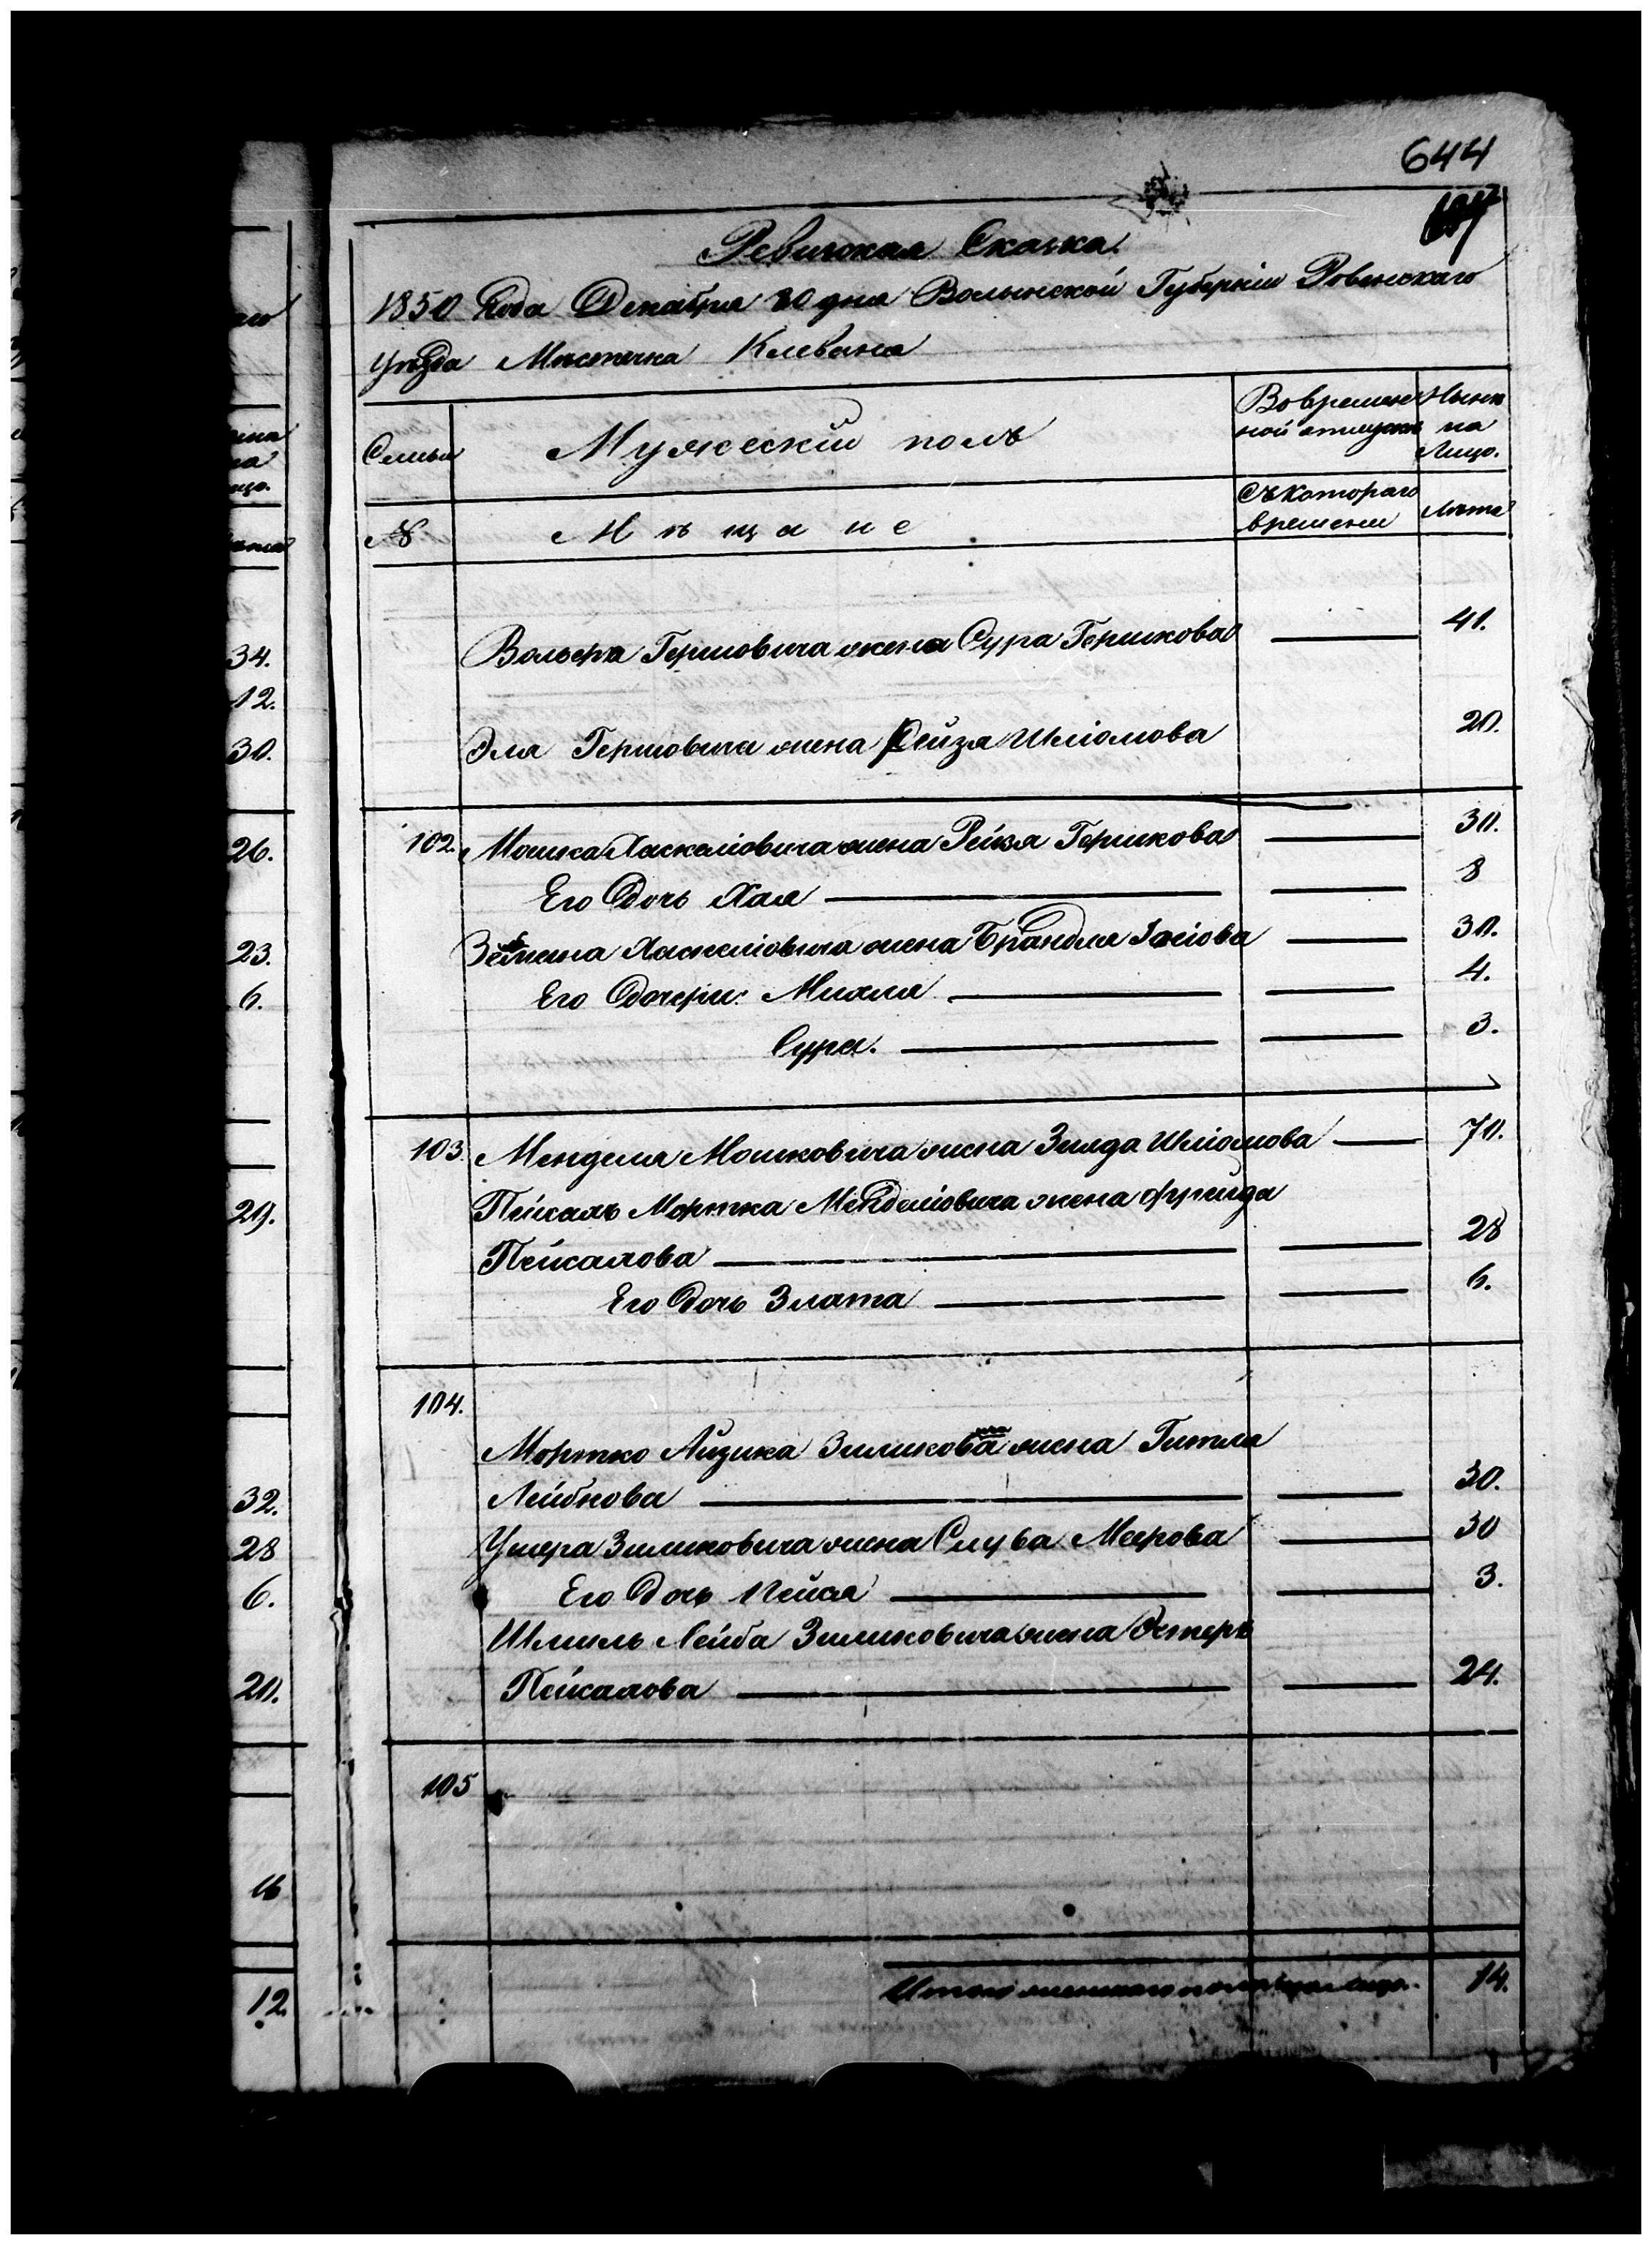 644
Ревизская Сказка.
1850 Года Декабря 30 дня Волынской Губерніи Ровенскаго
уѣзда Мѣстечка Клеваня
Семьи
Мужескій полъ
Во времен
ной отлучкѣ
Нынѣ
на
Лицо.
№
Мѣщане
Съ котораго
времени
Лѣта
Вольфа Гершовича жена Сура Гершкова 41.
Эля Гершовича жена Рейзя Шліомова 20.
102. Мошка Хаскеліовича жена Рейзя Гершкова 30.
Его Дочь Хая 8
Хаскеліовича жена Брандля Іосіова 30.
Его Дочери: Михля 4.
Сура. 3.
103. Менделя Мошковича жена Злада Шліомова 70.
Пейсахъ Мортка Менделіовича жена Фрейда
Пейсахова 28
Его Дочь Злата 6.
104.
Мортко Айзика Зимликова жена Гитля
Лейбкова 30.
Ушера Зимликовича жена Слува Меерова 30
Его Дочь Пейся 3.
Шмиль Лейба Зимликовича жена Эстеръ
Пейсахова 24.
105
Итого женскаго пола на лицо. 14.
34.
12.
30.
26.
23.
6.
29.
32.
28
6.
20.
16
12.